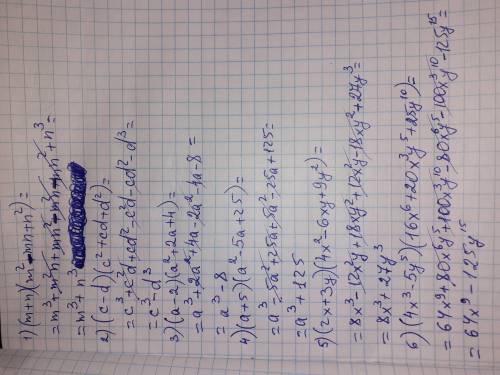 1)(m+n)(m²-mn+n²)=
=m³+m²n+mn²-m²n-mn²+n³
=m³+n³
2)(c-d)(c²+cd+d²)=
=c³+c²d+cd²-c²d-cd²-d³=
=c³-d³
3)(a-2)(a²+2a+4)=
=a³+2a²+4a-2a²-4a-8=
=a³-8
4)(a+5)(a²-5a+25)=
=a³-5a²+25a+5a²-25a+125=
=a³+125
5)(2x+3y)(4x²-6xy+9y²)=
=8x³-12x²y+18xy²+12x²y-18xy²+27y³=
=8x³+27y³
6)(4x³-5y⁵)(16x⁶+20x³y⁵+25y¹⁰)=
=64x⁹+80x⁶y⁵+100x³y¹⁰-80x⁶y⁵-100x³y¹⁰-125y¹⁵
=64x⁹-125y¹⁵